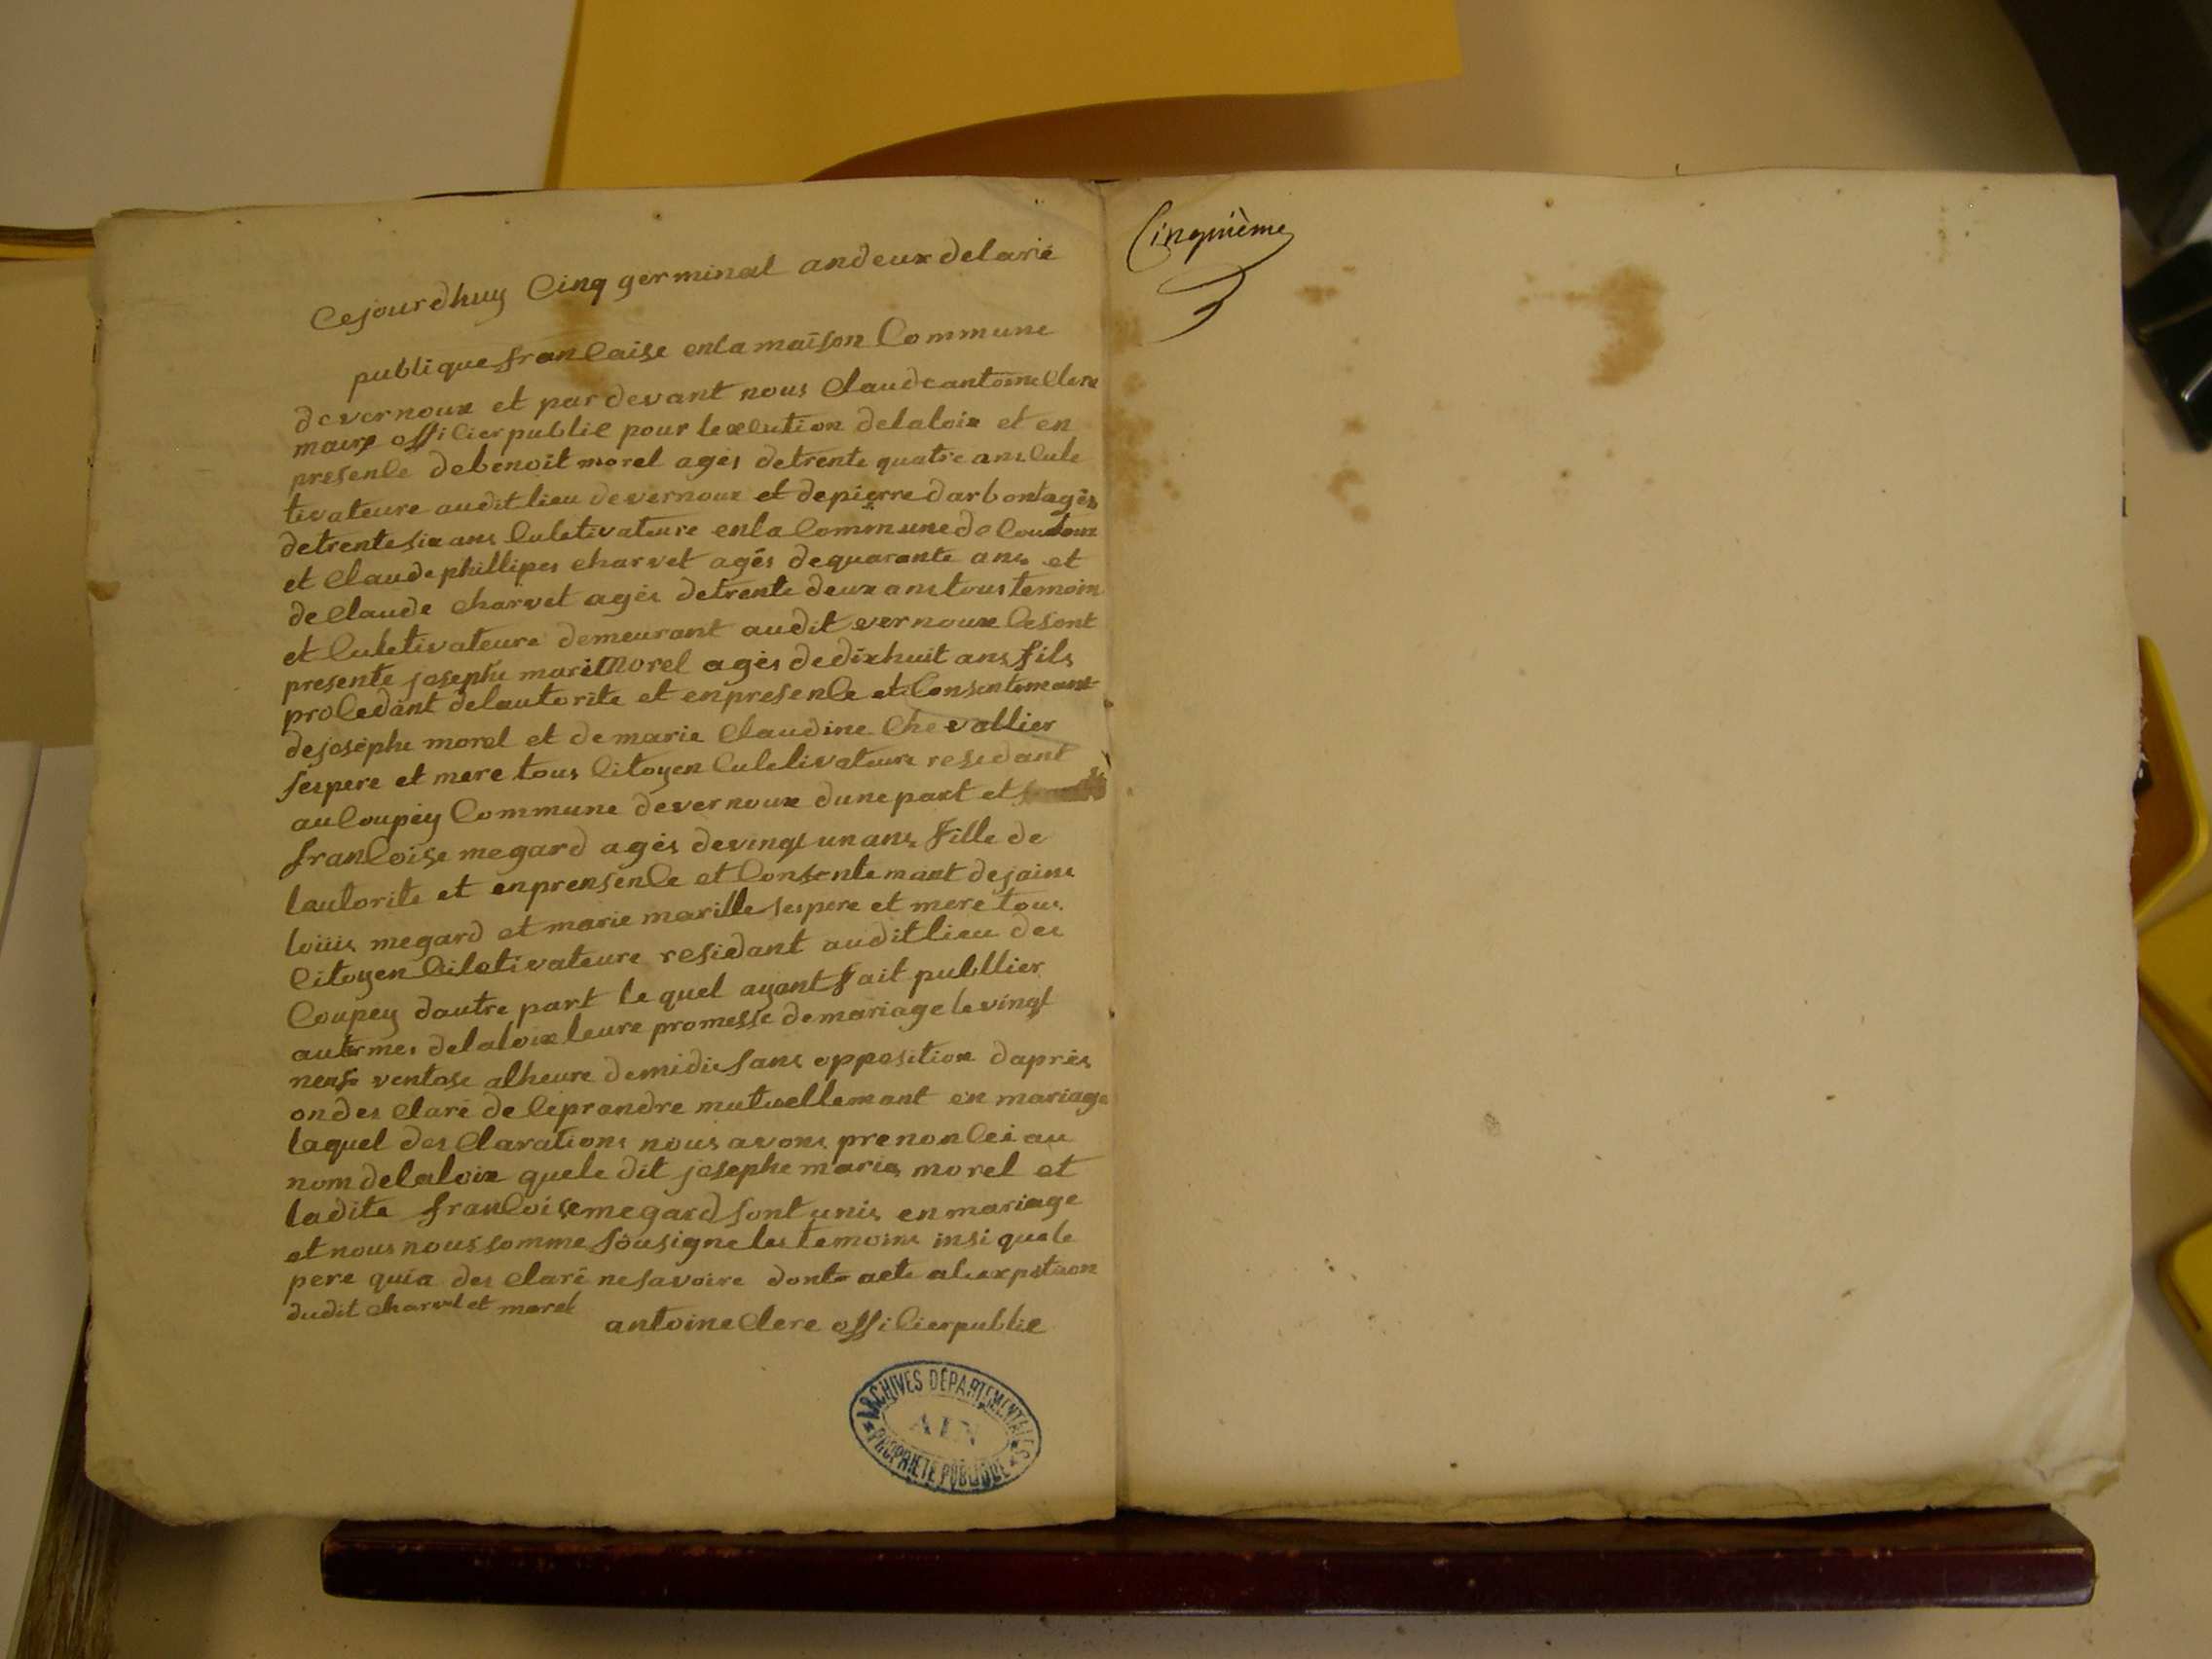 Cejourdhuy Cinq germinal andeux delaré
publique francaise enla maison Commune
devernoux et par devant nous Claudeantoine Clere
maire officier public pour lexcution delaloix et en
presence debenoit morel agés detrente quatre ans Cule
tivateure audit lieu devernoux et depierre darbont agés
detrentesix ans Culetivateure enla Commune de
et Claude phillipes charvet agés dequarante ans et
de Claude charvet agés detrente deux ans tous temoin
et Culetivateure demeurant audit vernoux cesont
presente josephe marie Morel agés dedixhuit ans fils
procedant delautorite et enpresence et Consentemant
dejosephe morel et de marie Claudine Chevallier
sespere et mere tous Citoyen Culetivateure residant
au Coupéy Commune devernoux dune part et
francoise megard agés devingt un ans fille de
lautorite et enprensence et Consentemant dejaine
loüis megard et marie marille sespere et mere tous
Citoyen Culetivateure residant auditlieu des
Coupey dautre part lequel ayant fait publlier
autermes delaloix leure promesse demariage levingt
neufe ventose alheure demidie sans opposition daprés
ondes Claré de Ceprandre mutuellemant en mariage
laquel des Clarations nous avons prenoncéi au
nom delaloix quele dit josephe marie morel et
ladite francoise megard sont unis en mariage
et nous nous somme sousigne les temoins insi quele
pere quia des Claré nesavoire dont acte
dudit charvet et morel
antoine Clere officier public
Cinquième
ARCHIVES DÉPARTEMENTALES
AIN
PROPRIETE PUBLIQUE